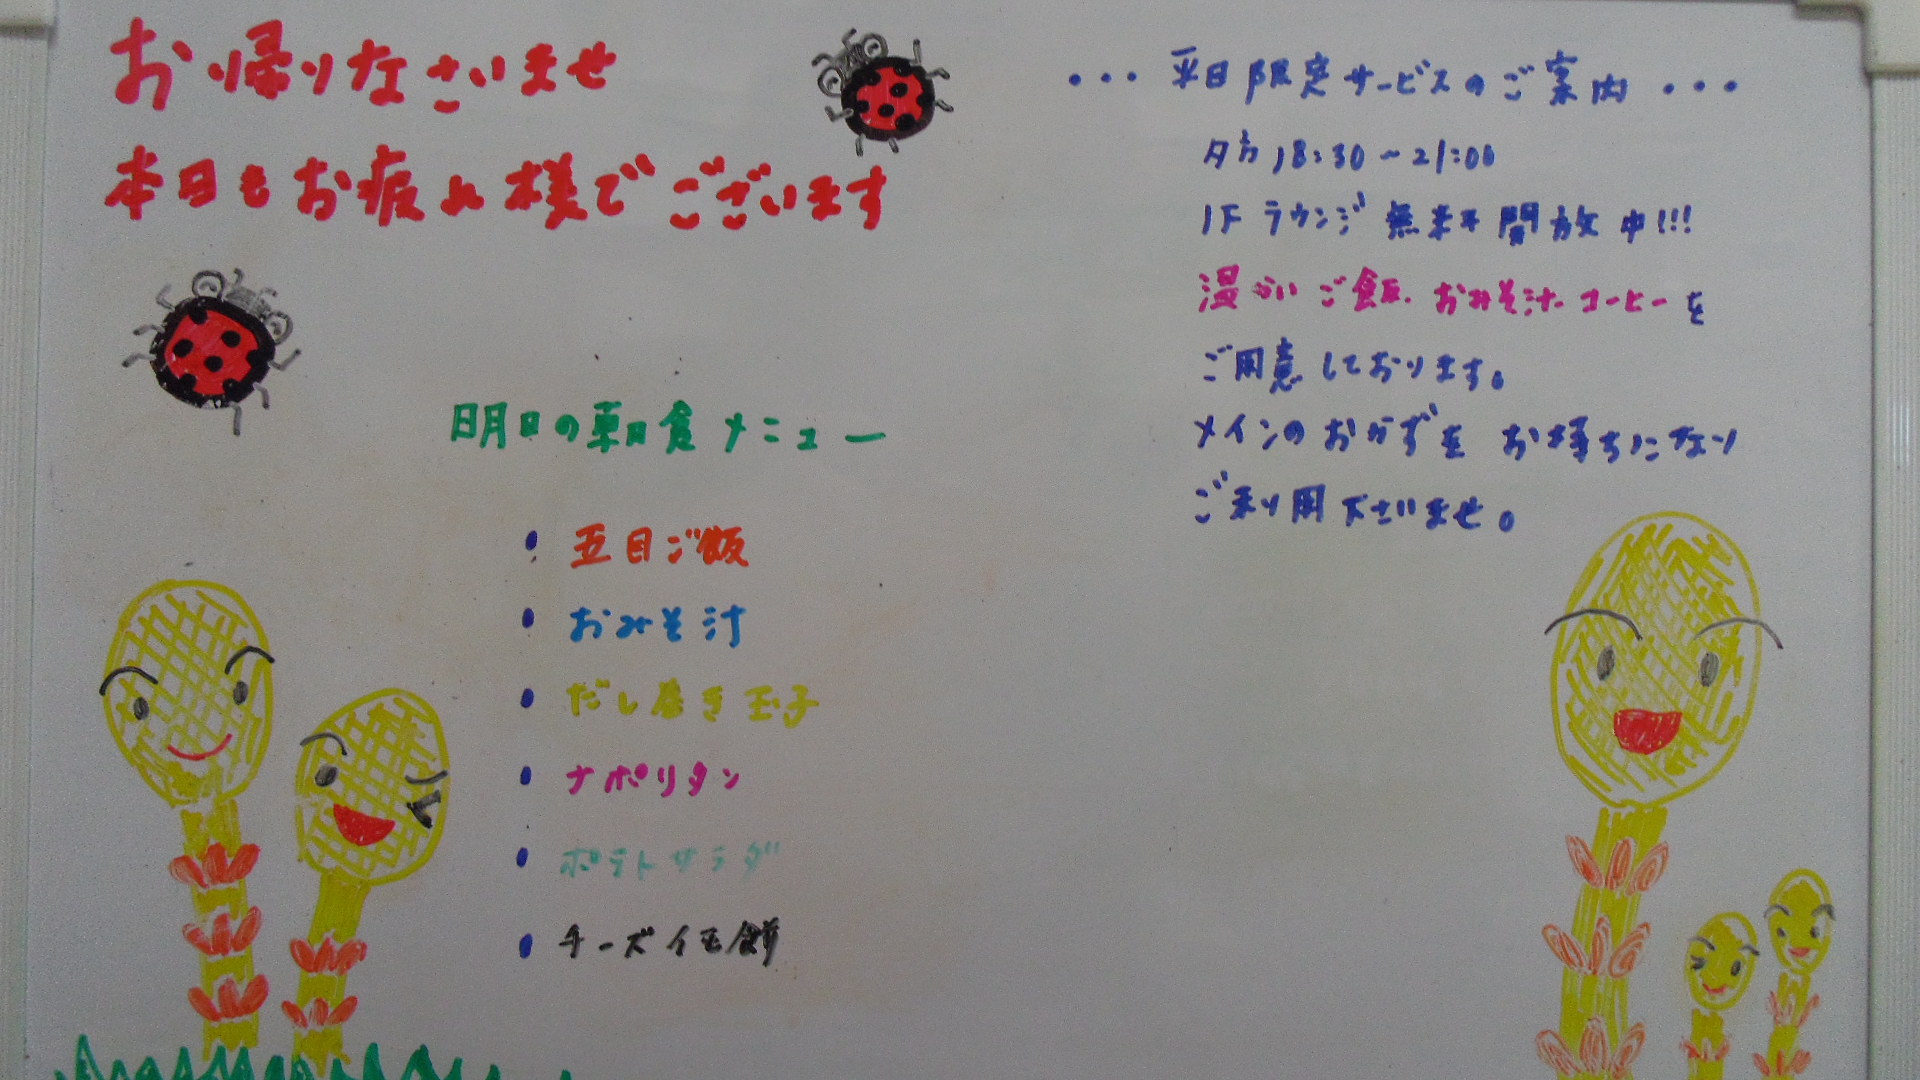 お帰りなさいませ
本日もお疲れ様でございます
明日の朝食メニュー
・五目ご飯
・おみそ汁
・だし巻き玉子
・ナポリタン
・ポテトサラダ
・チーズイモ餅
・・・平日限定サービスのご案内・・・
夕方18:30~21:00
1Fラウンジ無料開放中!!!
温かいご飯、おみそ汁、コーヒーを
ご用意しております。
メインのおかずをお持ちになり
ご利用下さいませ。